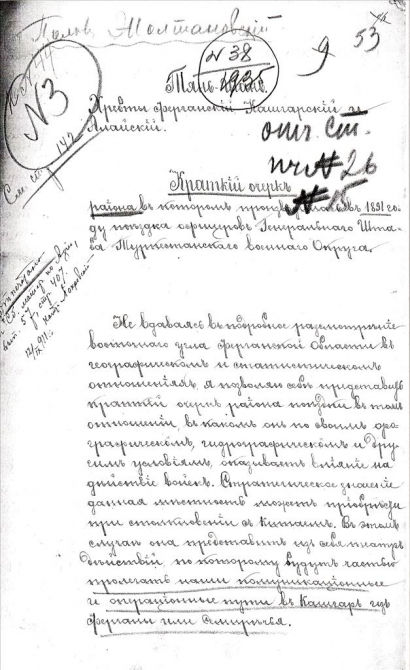 Полов. Молтановскій
№ 38
1935
9
53
№3
См. ст. 142
Тянь-Шань.
Хребты Ферганскій Кашгарскій и
Алайскій.
отч. ст.
№ 26
№ 15
Краткій очеркъ
района въ которомъ производилась въ 1891 го-
ду поѣздка офицеровъ Генеральнаго Шта-
ба Туркестанскаго военнаго Округа.
Не вдаваясь въ подробное разсмотрѣніе
восточнаго угла Ферганской Области въ
географическомъ и статистическомъ
отношеніяхъ, я позволяю себѣ представить
краткій очеркъ района поѣздки въ томъ
отношеніи, въ какомъ онъ по своимъ оро-
графическимъ, гидрографическимъ и дру-
гимъ условіямъ, оказываетъ вліяніе на
дѣйствіе войскъ. Стратегическое значеніе
данная мѣстность можетъ пріобрѣсти
при столкновеніи съ Китаемъ. Въ этомъ
случаѣ она представитъ изъ себя театръ
дѣйствій, по которому будутъ частью
пролегать наши коммуникаціонные
и операціонные пути въ Кашгаръ изъ
Ферганы или Семирѣчья.